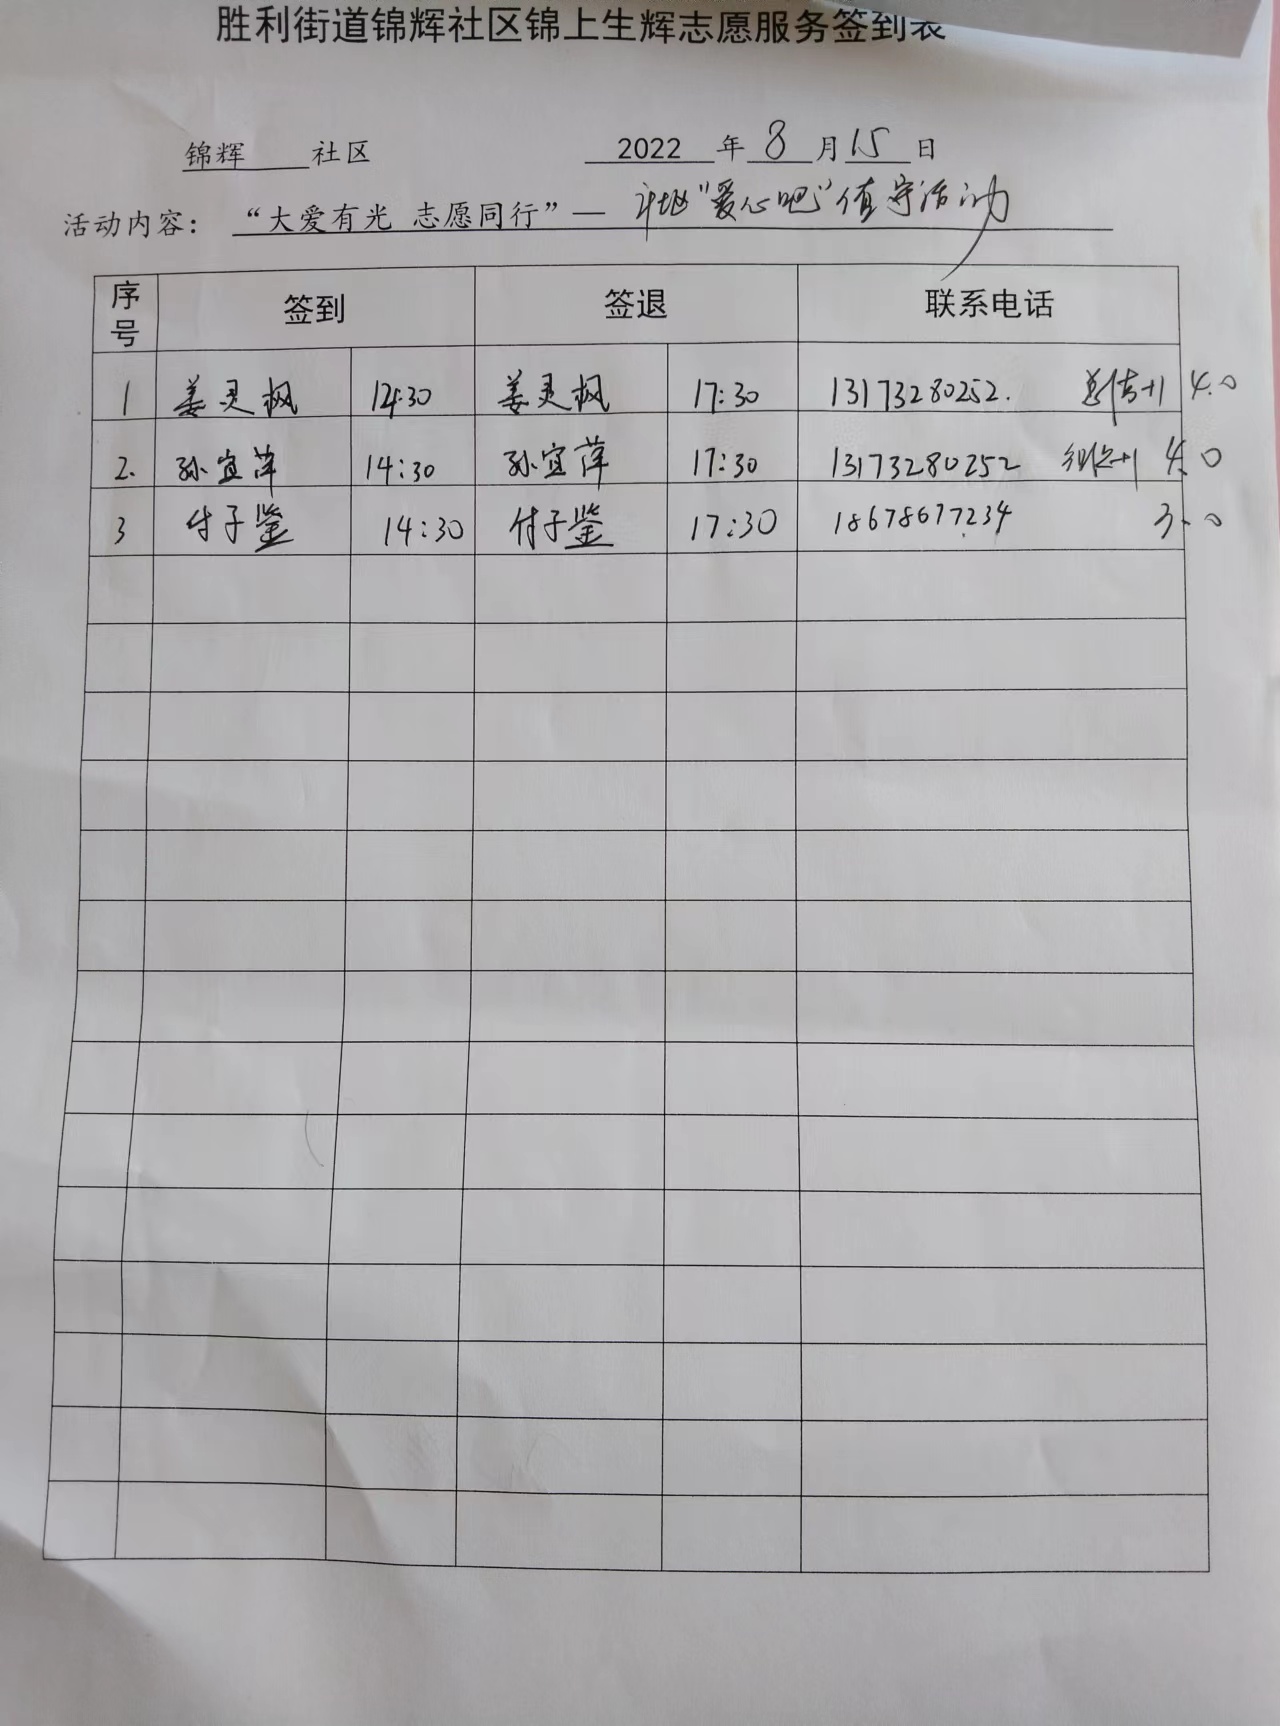 胜利街道锦辉社区锦上生辉志愿服务签到表
锦辉 社区 2022 年 8 月 15 日
活动内容： “大爱有光 志愿同行”— 社区“爱心吧”值守活动
序号 签到 签退 联系电话
1 姜灵枫 14:30 姜灵枫 17:30 13173280252. +1 4.0
2. 孙宜萍 14:30 孙宜萍 17:30 13173280252 +1 4.0
3 付子鉴 14:30 付子鉴 17:30 18678677234 3.0